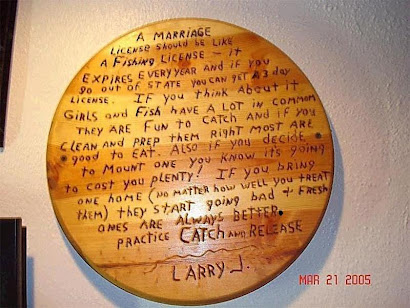 A MARRIAGE
LICENSE SHOULD BE LIKE
A FISHING LICENSE - it
EXPIRES EVERY YEAR AND if you
go out of STATE you CAN get A 3 day
LICENSE. IF you think About it
GIRLS and FISH HAVE A LOT IN COMMON
THEY ARE FUN to CATCH and if you
CLEAN and PREP THEM RIGHT MOST ARE
good to EAT. ALSO if you DECIDE
to MOUNT ONE you KNOW it's going
to cost you PLENTY! IF you BRING
ONE HOME (NO MATTER HOW WELL you TREAT
them) they START going BAD & FRESH
ONES ARE ALWAYS BETTER.
PRACTICE CATCH AND RELEASE
LARRY J.
MAR 21 2005